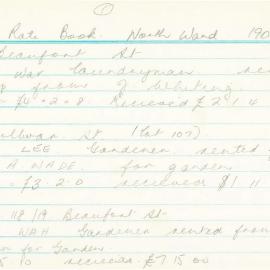 ①
Rate Book. North Ward 190
Beaufort St
War Laundryman
£4.2.8. Received £2.1.4
St (Lot 107)
LEE Gardener rented
A WADE. for garden
£3.2.0 received £1.11
118/19 Beaufort St.
WAH Gardener rented from
for Garden
10 received £7.15.00